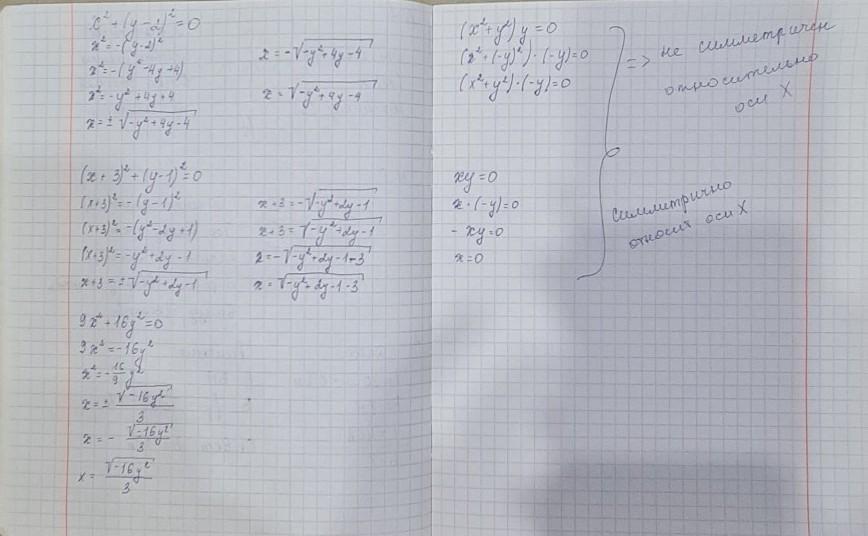 x² + (y-2)² = 0
x² = -(y-2)²
x² = -(y²-4y+4)
x² = -y²+4y+4
x = ± √-y²+4y-4
x = -√-y²+4y-4
x = √-y²+4y-4
(x+3)² + (y-1)² = 0
(x+3)² = -(y-1)²
(x+3)² = -(y²-2y+1)
(x+3)² = -y²+2y-1
x+3 = ±√-y²+2y-1
x+3 = -√-y²+2y-1
x+3 = √-y²+2y-1
x = -√-y²+2y-1-3
x = √-y²+2y-1-3
9x²+16y²=0
9x²=-16y²
x²=-16/9 y²
x = ± √-16y²/3
x = - √-16y²/3
x = √-16y²/3
(x²+y²)y=0
(x²+(-y)²)·(-y)=0
(x²+y²)·(-y)=0
=> не симметричен
относительно
оси X
xy=0
x·(-y)=0
-xy=0
x=0
симметрично
относит оси X